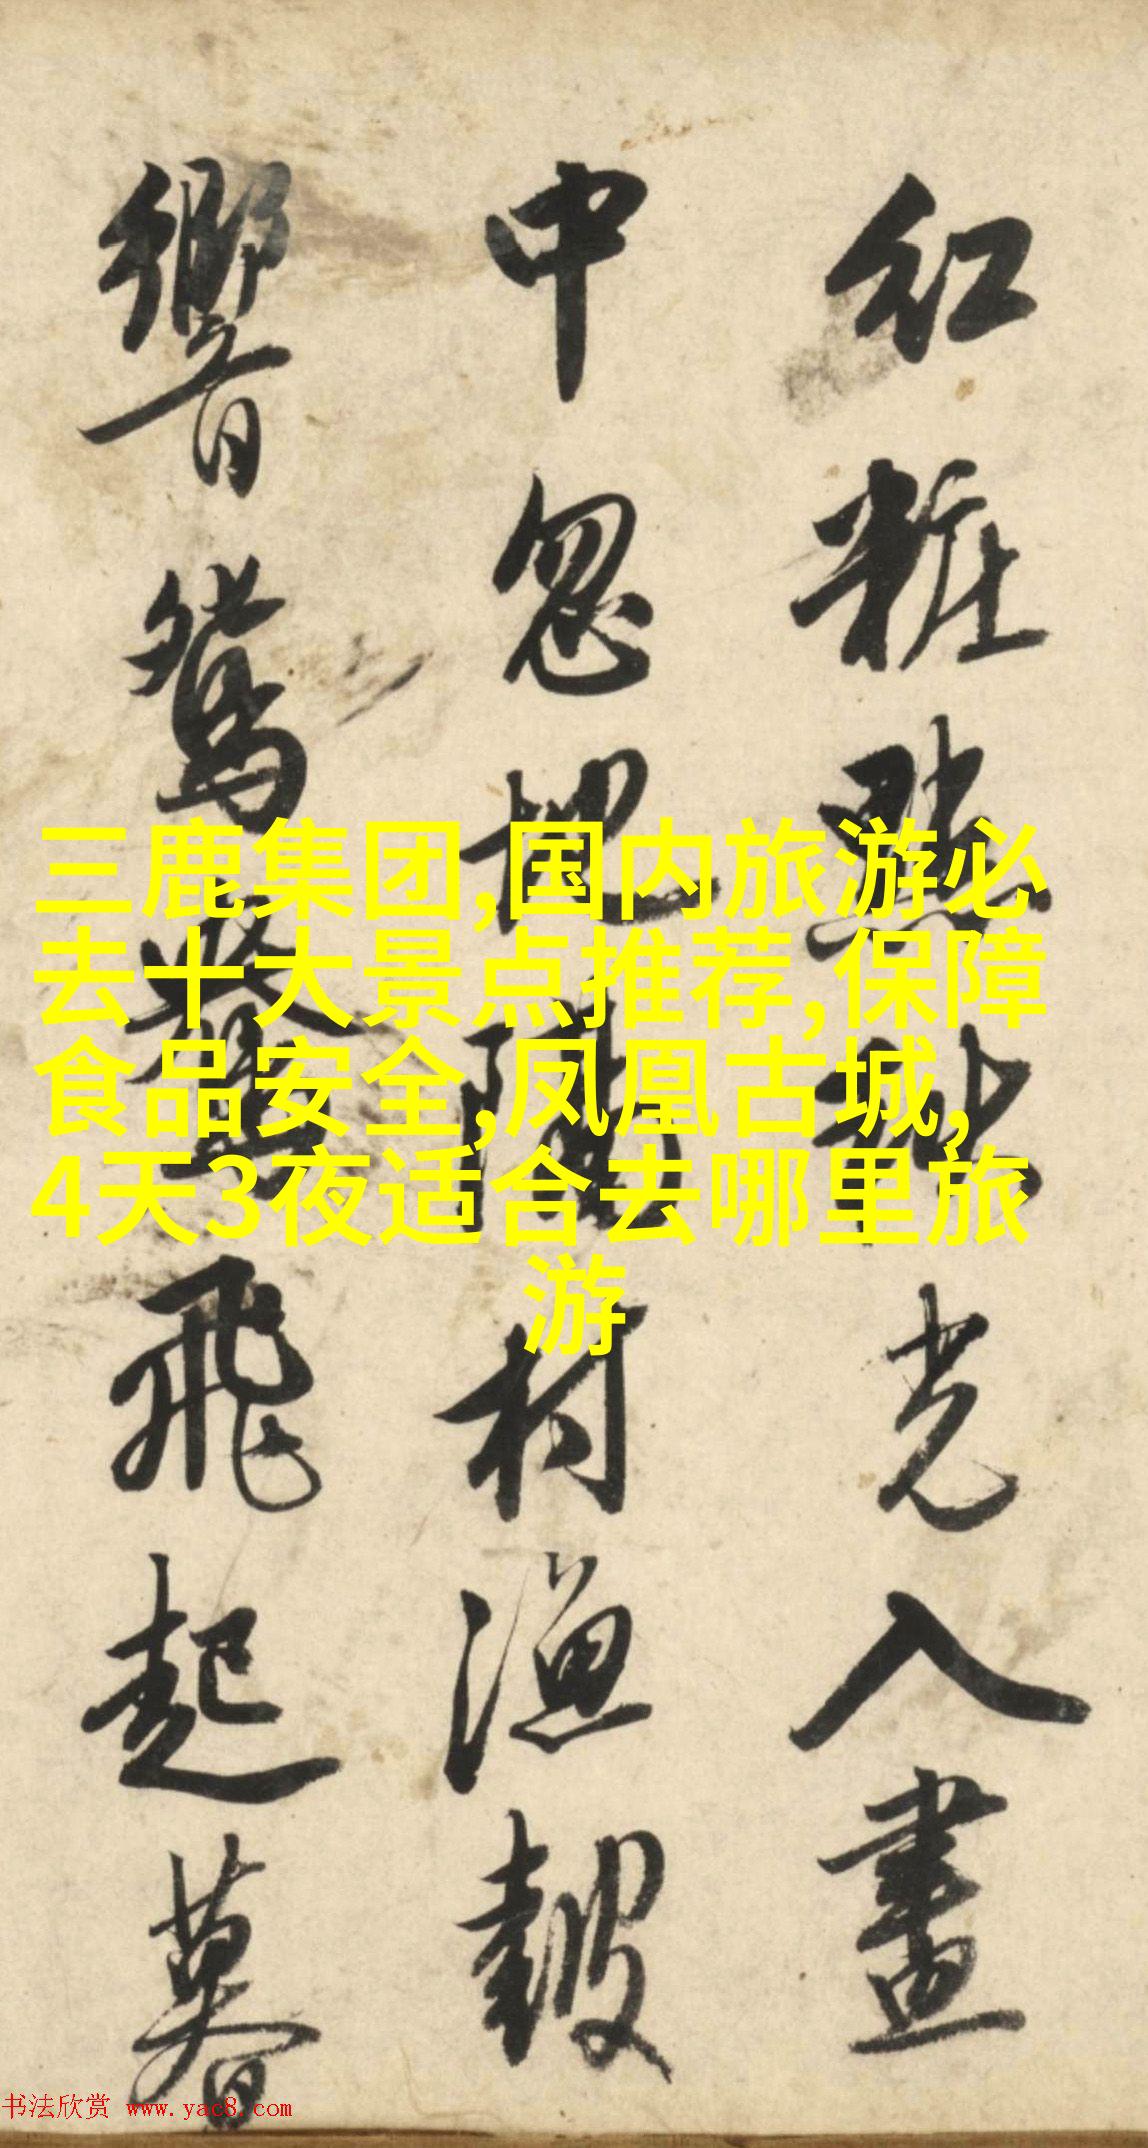 紅粧點光入畫
中忽隔村漁鼓
響鴛飛起暮
三鹿集团,国内旅游必
去十大景点推荐,保障
食品安全,凤凰古城,
4天3夜适合去哪里旅
游
书法欣赏 www.yac8.com